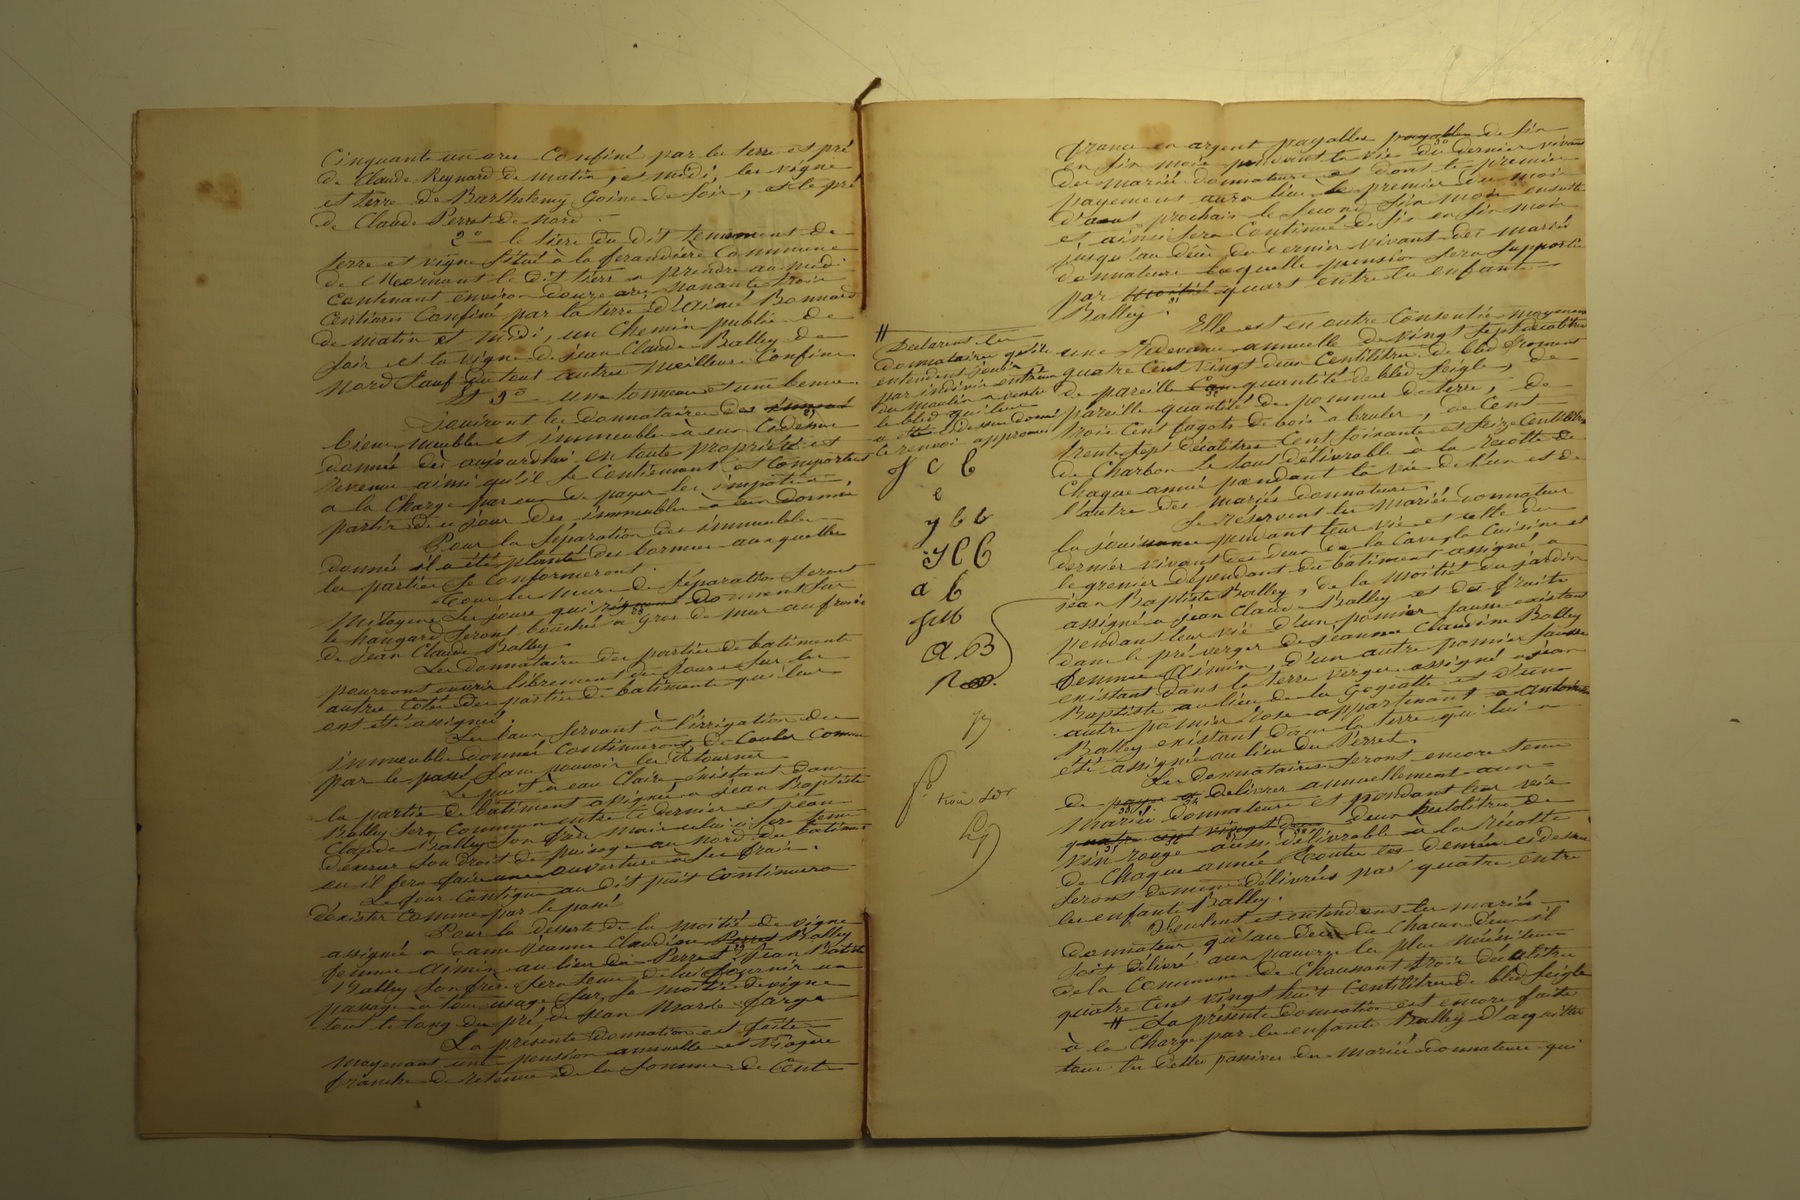 Cinquante un are Confiné par les terre et pré
de Claude Reynard de matin, et midi, les vigne
et terre de Barthelemy Goine de Soir, et le pré
de Claude Perret de nord.
2° le tiers du dit tennement de
terre et vigne Situé à la ferandière Commune
de Mornant le dit tiers a prendre au midi
contenant environ douze ares nonante trois
Centiares Confiné par la terre d'aimé Bonnard
de matin et midi, un Chemin public de
Soir et la vigne de jean Claude Balley de
nord Sauf du tout autres meilleurs Confins
Et 3° un tonneau et une benne.
Jouiront les donnataires des
biens meubles et immeubles à eux Cidessus
donnés dès aujourdhui en toute propriété et
revenus ainsi qu'il Se Contiennent et Comportent
a la Charge par eux de payer les impots à
partir de ce jour des immeubles à eux donnés
Pour la Séparation des immeubles
donnés il a été planté des bornes auxquelles
les parties Se Conformeront.
Tous les murs de Séparation Seront
mitoyens Les jours qui donnent Sur
le hangard Seront bouchés a gros de mur aux frais
de jean Claude Balley.
Les donnataires des parties de batiments
pourront ouvrir librement des jours Sur les
autres cotés des parties de batiments qui leur
ont été assignés.
Les Eaux Servant à l'irrigation des
immeubles donnés Continueront de Couler Comme
par le passé Sans pouvoir les détourner
Le puit à eau Claire existant dans
la partie de batiment assignée a jean Baptiste
Balley Sera Commun entre ce dernier et jean
Claude Balley Son frère mais celui ci Sera tenu
d'exercer Son droit de puisage au nord du batiment
ou il fera faire une ouverture a Ses frais.
Le four Contigu au dit puit Continuera
d'éxister Comme par le passé
Pour la desserte de la moitié de vigne
assignée a dame jeanne Claudine Perret Balley
femme Aimin au lieu du Perret, jean Batiste
Balley Son frère Sera tenu de lui fournir un
passage à tous usage Sur Sa moitié de vigne
tout le long du pré de jean Marie farge
La présente donnation est faite
moyennant une pension annuelle et viagere
franche de retenue de la Somme de Cent
francs en argent payables payables de Six
en Six mois pendant la vie du dernier vivant
des mariés donnateurs et dont le premier
payement aura lieu le premier du mois
d'aout prochain le Second Six mois ensuite
et ainsi Sera Continué de Six en Six mois
jusqu'au décès du dernier vivant des mariés
donnateurs laquelle pension Sera Supportée
par moitié quart entre les enfants
Balley.
Elle est en outre Consentie moyennant
une Redevance annuelle de vingt Sept décalitres
quatre Cent vingt deux Centilitres de bled froment
de pareille quantité de bled Seigle, de
pareille quantité de pommes de terre, de
trois Cent fagots de bois à bruler, de Cent
trente Sept décalitres Cent Soixante et Seize Centilitres
de Charbon Le tous délivrable à la récolte de
Chaque année pendant la vie de l'un et de
l'autre des mariés donnateurs.
Se réservent les Mariés donnateur
la jouissance pendant leur vie et celle du
dernier vivant des deux de la Cave la Cuisine et
le grenier dépendant du batiment assigné a
jean Baptiste Balley, de la moitiét du jardin
assigné a jean Claude Balley et des fruits
pendant leur vie d'un pomier jaune existant
dans le pré verger de jeanne Claudine Balley
femme Aimin, d'un autre pomier jaune
existant dans la terre verger assigné a jean
Baptiste au lieu de la Goyeatte et d'un
autre pomier Rose appartenant a antoine
Balley existant dans la terre qui lui a
été assigné au lieu du Perret.
Les donnataires Seront encore tenus
de délivrer annuellement aux
Mariés donnateurs et pendant leur vie
quatre cent vingt deux deux hectolitres de
vin rouge aussi délivrable à la récolte
de Chaque année Toutes les denrées cidessus
Seront de meme délivrées par quatre entre
les enfants Balley.
Veulent et entendent les mariés
donnateur qu'au décès de Chacun d'eux il
Soit délivré aux pauvres les plus nécésiteux
de la Commune de Chaussant trois décalitres
quatre Cent vingt huit Centilitres de bled Seigle
# La présente donnation est encore faite
à la Charge par les enfants Balley d'acquitter
tous les dettes passives des mariés donnateurs qui
# Declarent les
donnataires qu'ils
entendent jouir
par indivis entr'eux
du moulin a vente
le bled qui leur
a été Cidessus donné
Ce renvoi approuvé
J C B
e
y b b
J C B
a b
A.B